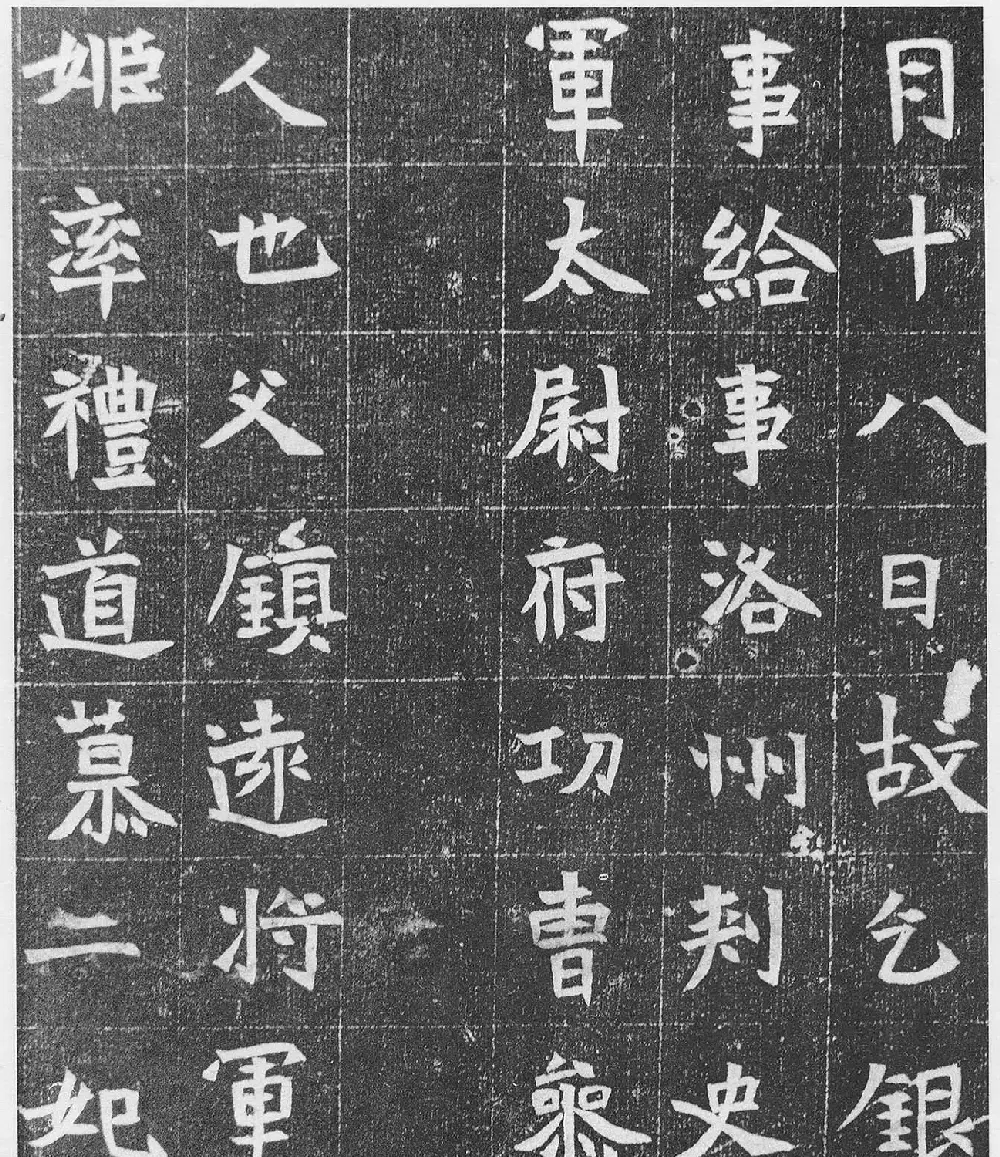 月十八日故乞銀
事給事洛州刾史
軍太尉府功曹叅
人也父鎮遠將軍
姬率禮道慕二妃